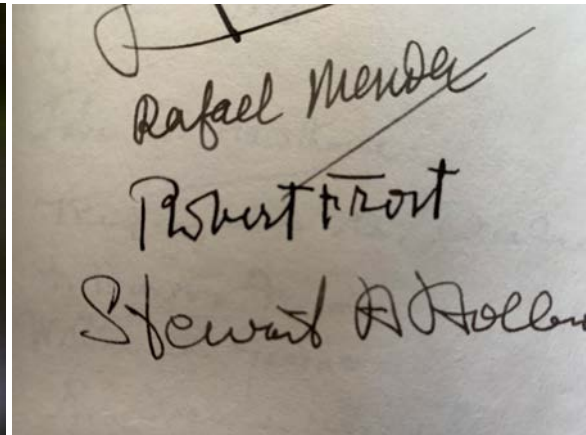 Rafael Mendez
Robert Frost
Stewart H Hollen